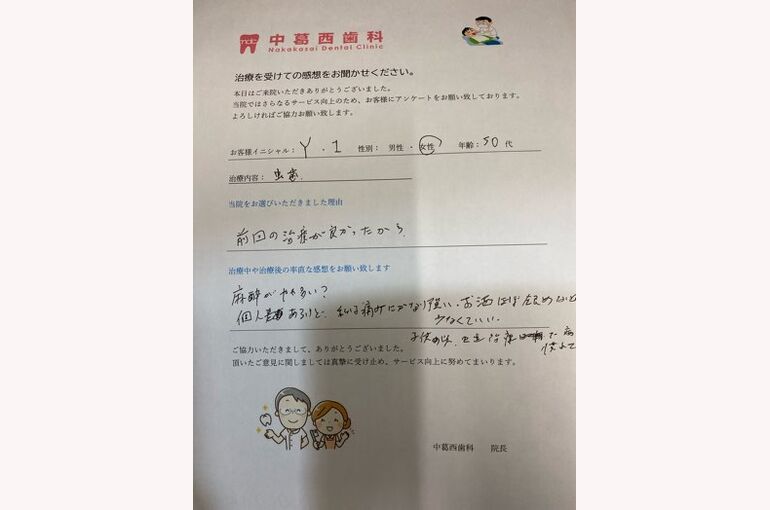 中葛西歯科
Nakakasai Dental Clinic
治療を受けての感想をお聞かせください。
本日はご来院いただきありがとうございました。
当院ではさらなるサービス向上のため、お客様にアンケートをお願い致しております。
よろしければご協力お願い致します。
お客様イニシャル: Y . I 性別: 男性 ・ 女性 年齢: 50 代
治療内容: 虫歯.
当院をお選びいただきました理由
前回の治療が良かったから
治療中や治療後の率直な感想をお願い致します
麻酔がやや多い?
個人差あるけど、 痛みにかなり強い、お酒ほぼ飲めない
少なくていい。
子供の 治療
ご協力いただきまして、ありがとうございました。
頂いたご意見に関しましては真摯に受け止め、サービス向上に努めてまいります。
中葛西歯科 院長